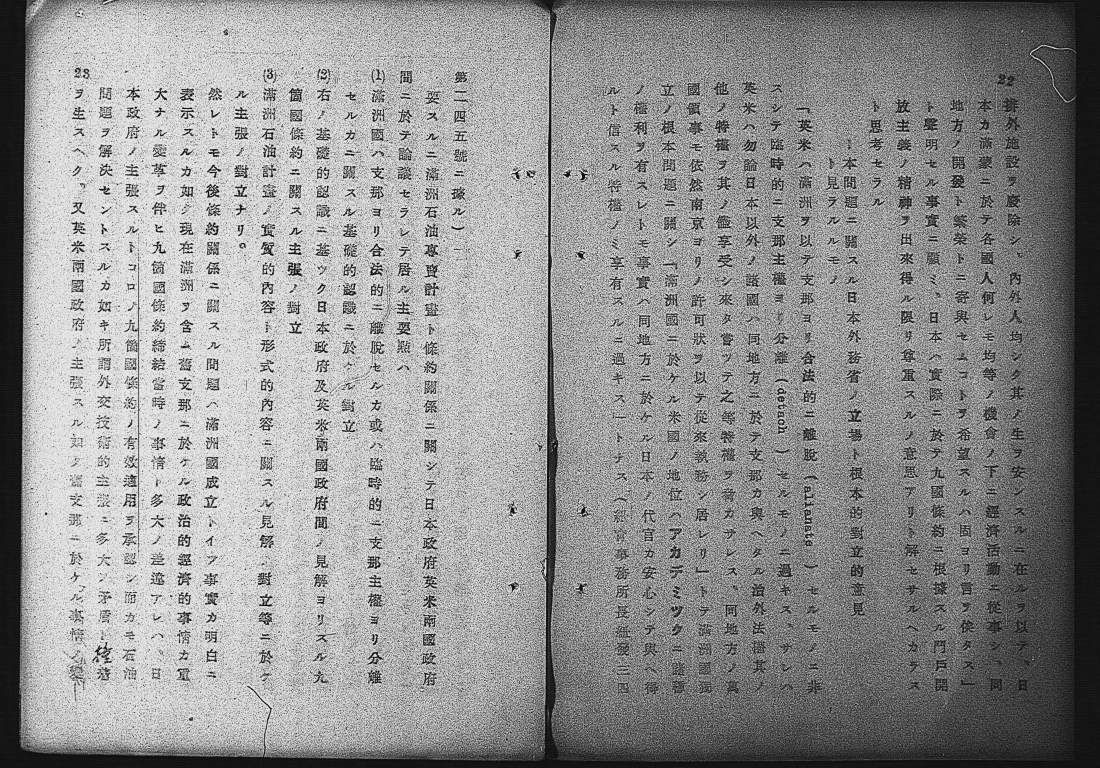 22
排外施設ヲ廢除シ、內外人均シク其ノ生ヲ安ンスルニ在ルヲ以テ、日
本カ滿蒙ニ於テ各國人何レモ均等ノ機會ノ下ニ經濟活動ニ從事シ、同
地方ノ開發ト繁榮トニ寄與セムコトヲ希望スルハ固ヨリ言ヲ俟タス」
ト聲明セル事實ニ顧ミ、日本ハ實際ニ於テ九國條約ニ根據スル門戶開
放主義ノ精神ヲ出來得ル限リ尊重スルノ意思アリト解セサルヘカラス
ト思考セラル
ト本問題ニ關スル日本外務省ノ立場ト根本的對立的意見
ト見ラルルモノ
「英米ハ滿洲ヲ以テ支那ヨリ合法的ニ離脫(alienate)セルモノニ非
スシテ臨時的ニ支那主權ヨリ分離(detach)セルモノニ過キス、サレハ
英米ハ勿論日本以外ノ諸國ハ同地方ニ於テ支那カ與ヘタル治外法權其ノ
他ノ特權ヲ其ノ儘享受シ來タ嘗ツテ之等特權ヲ脅カサレス、同地方ノ萬
國領事モ依然南京ヨリノ許可狀ヲ以テ從來執務シ居レリ」トテ滿洲國
立ノ根本問題ニ關シ「滿洲國ニ於ケル米國ノ地位ハアカデミツクニ諸
ノ權利ヲ有スレトモ事實ハ同地方ニ於ケル日本ノ代官カ安心シテ與ヘ得
ルト信スル特權ノミ享有スルニ過キス」トナス(紐育事務所長紐發三四
第二四五號ニ據ル)
要スルニ滿洲石油專賣計畫ト條約關係ニ關シテ日本政府英米兩國政府
間ニ於テ論議セラレテ居ル主要點ハ
(1)滿洲國ハ支那ヨリ合法的ニ離脫セルカ或ハ臨時的ニ支那主權ヨリ分離
セルカニ關スル基礎的認識ニ於ケル對立
(2)右ノ基礎的認識ニ基ツク日本政府及英米兩國政府間ノ見解ヨリスル九
箇國條約ニ關スル主張ノ對立
(3)滿洲石油計畫ノ實質的內容ト形式的內容ニ關スル見解ノ對立等ニ於ケ
ル主張ノ對立ナリ。
然レトモ今後條約關係ニ關スル問題ハ滿洲國成立トイフ事實カ明白ニ
表示スルカ如ク現在滿洲ヲ含ム舊支那ニ於ケル政治的經濟的事情カ重
大ナル變革ヲ伴ヒ九箇國條約締結當時ノ事情ト多大ノ差違アレハ、日
本政府ノ主張スルトコロノ九箇國條約ノ有效適用ヲ承認シ而カモ石油
問題ヲ解決セントスルカ如キ所謂外交技術的主張ニ多大ノ矛盾
ヲ生スヘク、又英米兩國政府ノ主張スル如ク舊支那ニ於ケル事情ノ變
23